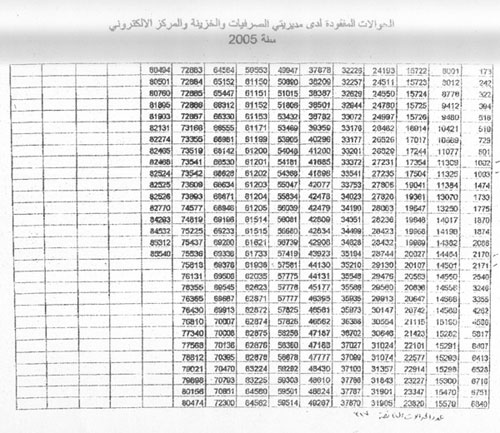 الحوالات المفقودة لدى مديريتي الصرفيات والخزينة والمركز الالكتروني
سنة 2005
80494 72883 64584 59553 49947 37878 32226 24193 15722 8001 173
80501 72884 65152 61150 50890 38209 32257 24511 15723 8012 242
80760 72885 65447 61151 51015 38387 32629 24550 15724 8778 322
81895 72886 66312 61152 51806 38501 32944 24780 15725 9412 394
81903 72887 66330 61153 53432 38782 33072 24997 15726 9480 518
82131 73166 66555 61171 53469 39359 33176 26462 16914 10421 510
82274 73355 66981 61199 53905 40296 33177 26526 17017 10589 729
82435 73519 68142 61200 54048 41200 33201 26829 17244 11077 801
82468 73541 68530 61201 54181 41685 33372 27231 17354 11309 1002
82524 73542 68628 61202 54368 41898 33541 27235 17504 11325 1093
82525 73609 68634 61203 55047 42077 33753 27806 19041 11384 1474
82526 73893 68671 61204 55834 42478 34023 27826 19361 13070 1733
82770 74577 68946 61206 56039 42479 34190 28063 19647 13250 1775
84293 74819 69196 61514 56081 42809 34351 28236 19648 14017 1870
84532 75225 69233 61515 56680 42834 34499 28423 19968 14198 1874
85312 75437 69280 61621 56739 42906 34828 28432 19989 14382 2086
85540 75536 69336 61733 57419 43923 35194 28744 20027 14454 2170
75618 69376 61936 57561 44130 35210 29130 20107 14501 2171
76131 69606 62035 57775 44131 35548 29476 20563 14550 2540
76355 69545 62623 57776 45177 35586 29560 20836 14556 3249
76365 69687 62871 57777 46395 35935 29913 20647 14566 3355
76430 69913 62872 57825 46561 35973 30147 20742 14560 4262
76810 70007 62874 57826 46562 36386 30554 21115 15150 4586
77340 70008 62875 58256 47187 36702 30646 21423 15289 5817
77568 70136 62876 58360 47188 37027 31024 22101 15291 6407
78812 70395 62878 58678 47777 37099 31074 22577 15293 6413
79021 70470 63224 59292 48430 37103 31357 22914 15298 6528
79898 70793 63225 59303 48610 37786 31843 23227 15300 6718
80156 70851 64580 59501 48624 37787 31901 23347 15470 6751
80474 72300 64582 59514 49207 37870 31905 23820 15570 6840